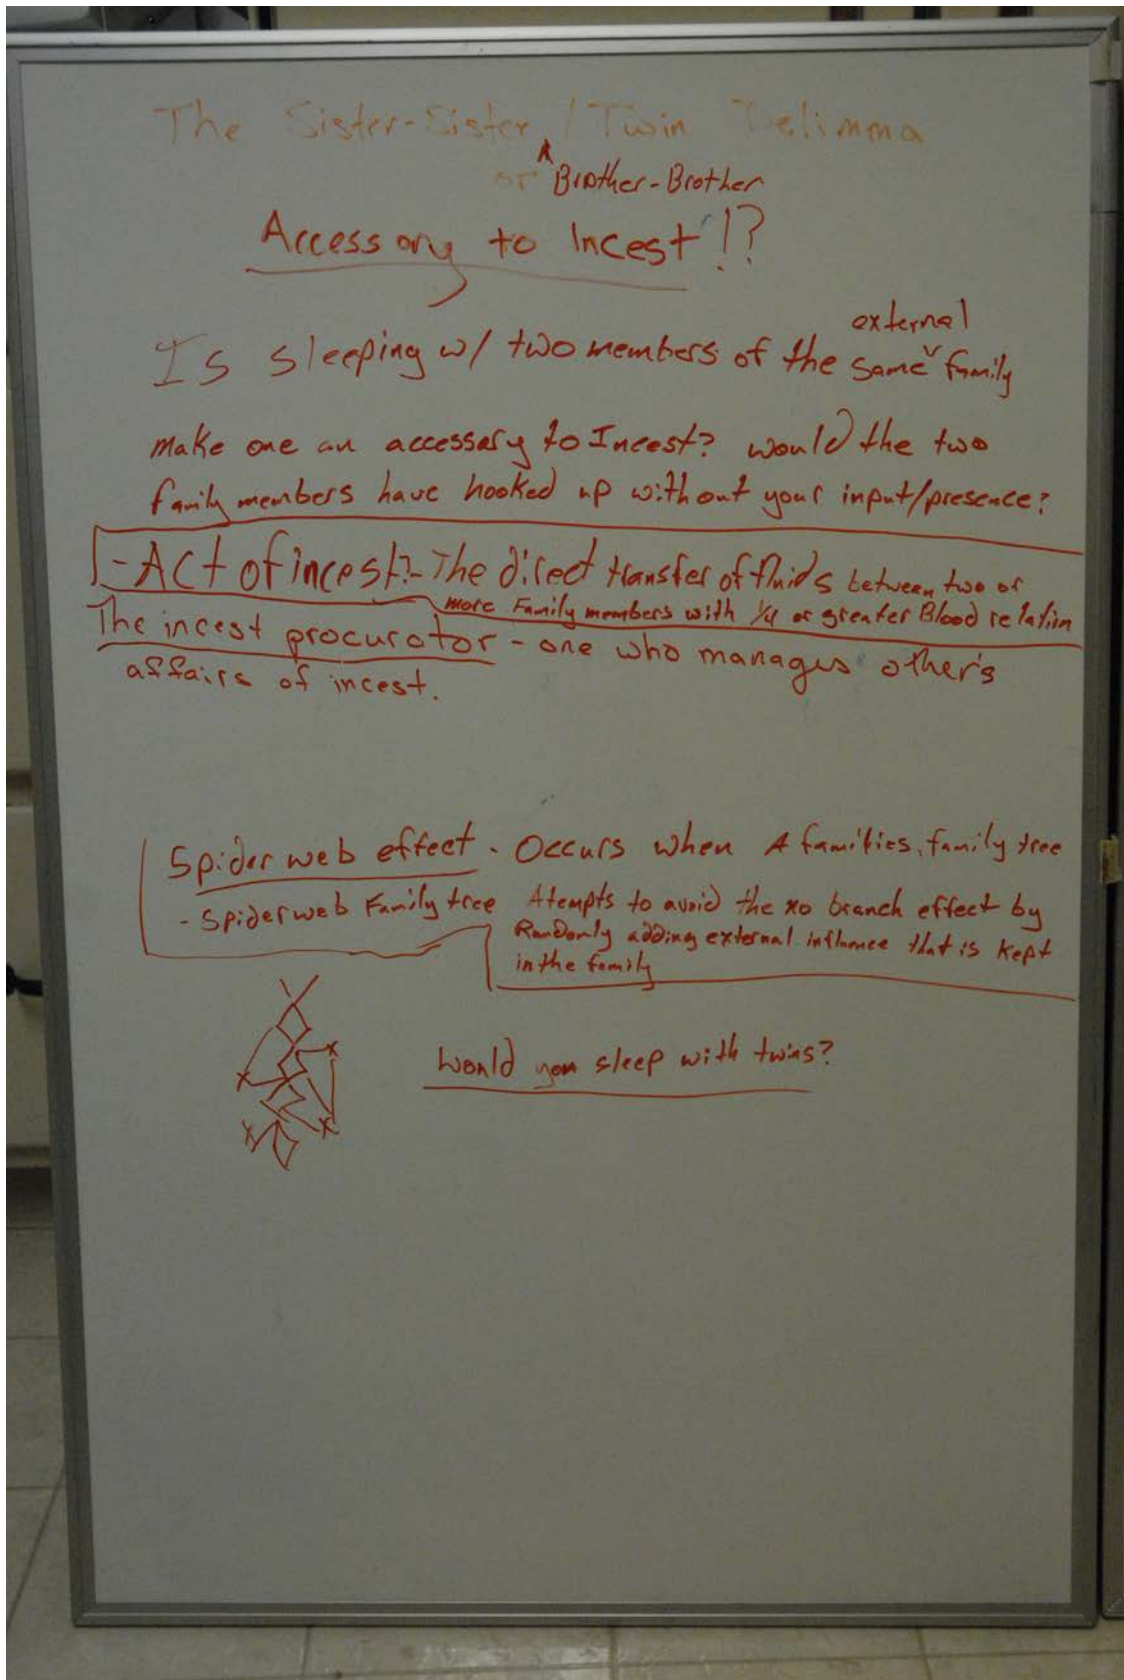 The Sister-Sister / Twin Delimma
or Brother-Brother
Accessory to Incest!?
external
Is sleeping w/ two members of the same family
make one an accessary to Incest? would the two
family members have hooked up without your input/presence?
-Act of incest?- The direct transfer of fluids between two or
more Family members with 1/4 or greater Blood relation
The incest procurator - one who manages other's
affairs of incest.
Spider web effect - Occurs when A families, family tree
- Spiderweb Family tree Atempts to avoid the no branch effect by
Randomly adding external influence that is kept
in the family
Would you sleep with twins?